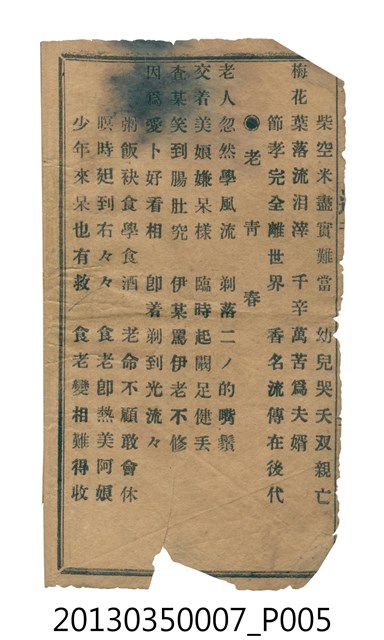 柴空米盡實難當　幼兒哭夭双親亡
梅花葉落流泪滓　千辛萬苦爲夫婿
節孝完全離世界　香名流傳在後代
◉老青春
老人忽然學風流　剃落二ノ的嘴鬚
交着美娘嫌呆樣　臨時起闕足健丟
查某笑到腸肚究　伊某罵伊老不修
因爲愛卜好看相　卽着剃到光流々
粥飯袂食學食酒　老命不顧敢會休
暝時𨑨到右々々　食老卽熱美阿娘
少年來呆也有救　食老變相難得收
20130350007_P005